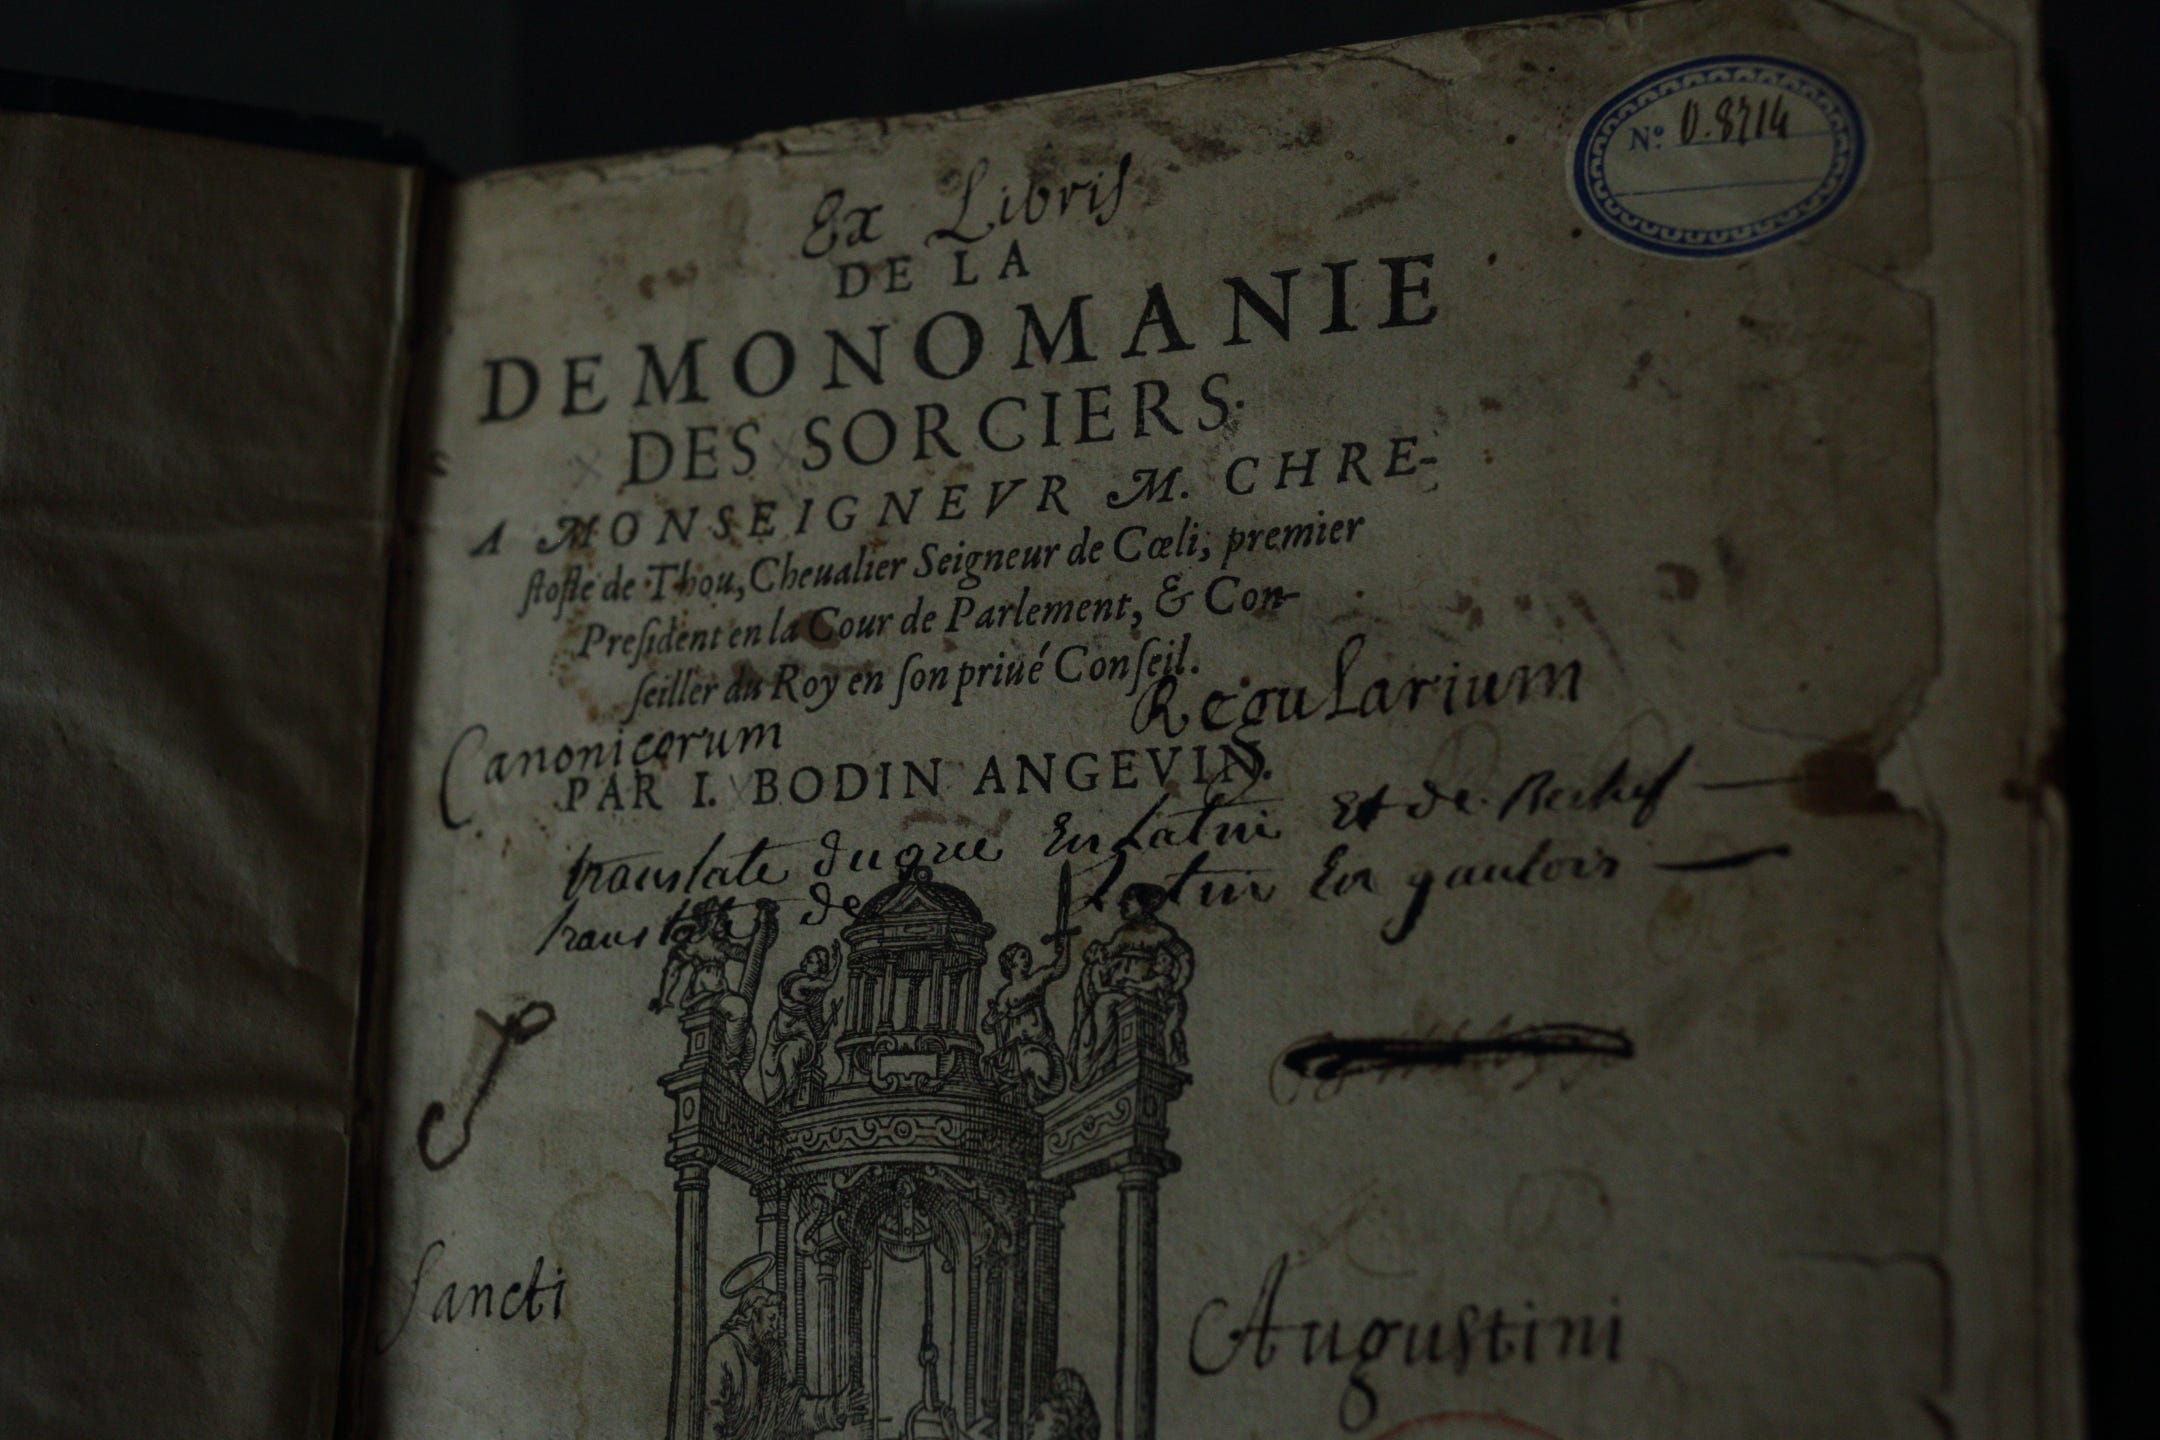 Nº. 0.8714
Ex Libris
DE LA
DEMONOMANIE
DES SORCIERS.
A MONSEIGNEVR M. CHRE-
ſtofle de Thou, Cheualier Seigneur de Cœli, premier
Preſident en la Cour de Parlement, & Con-
ſeiller du Roy en ſon priué Conſeil.
Canonicorum Regularium
PAR I. BODIN ANGEVIN.
translate du grec En Latin Et de
translate de Latin En gaulois
Sancti Augustini